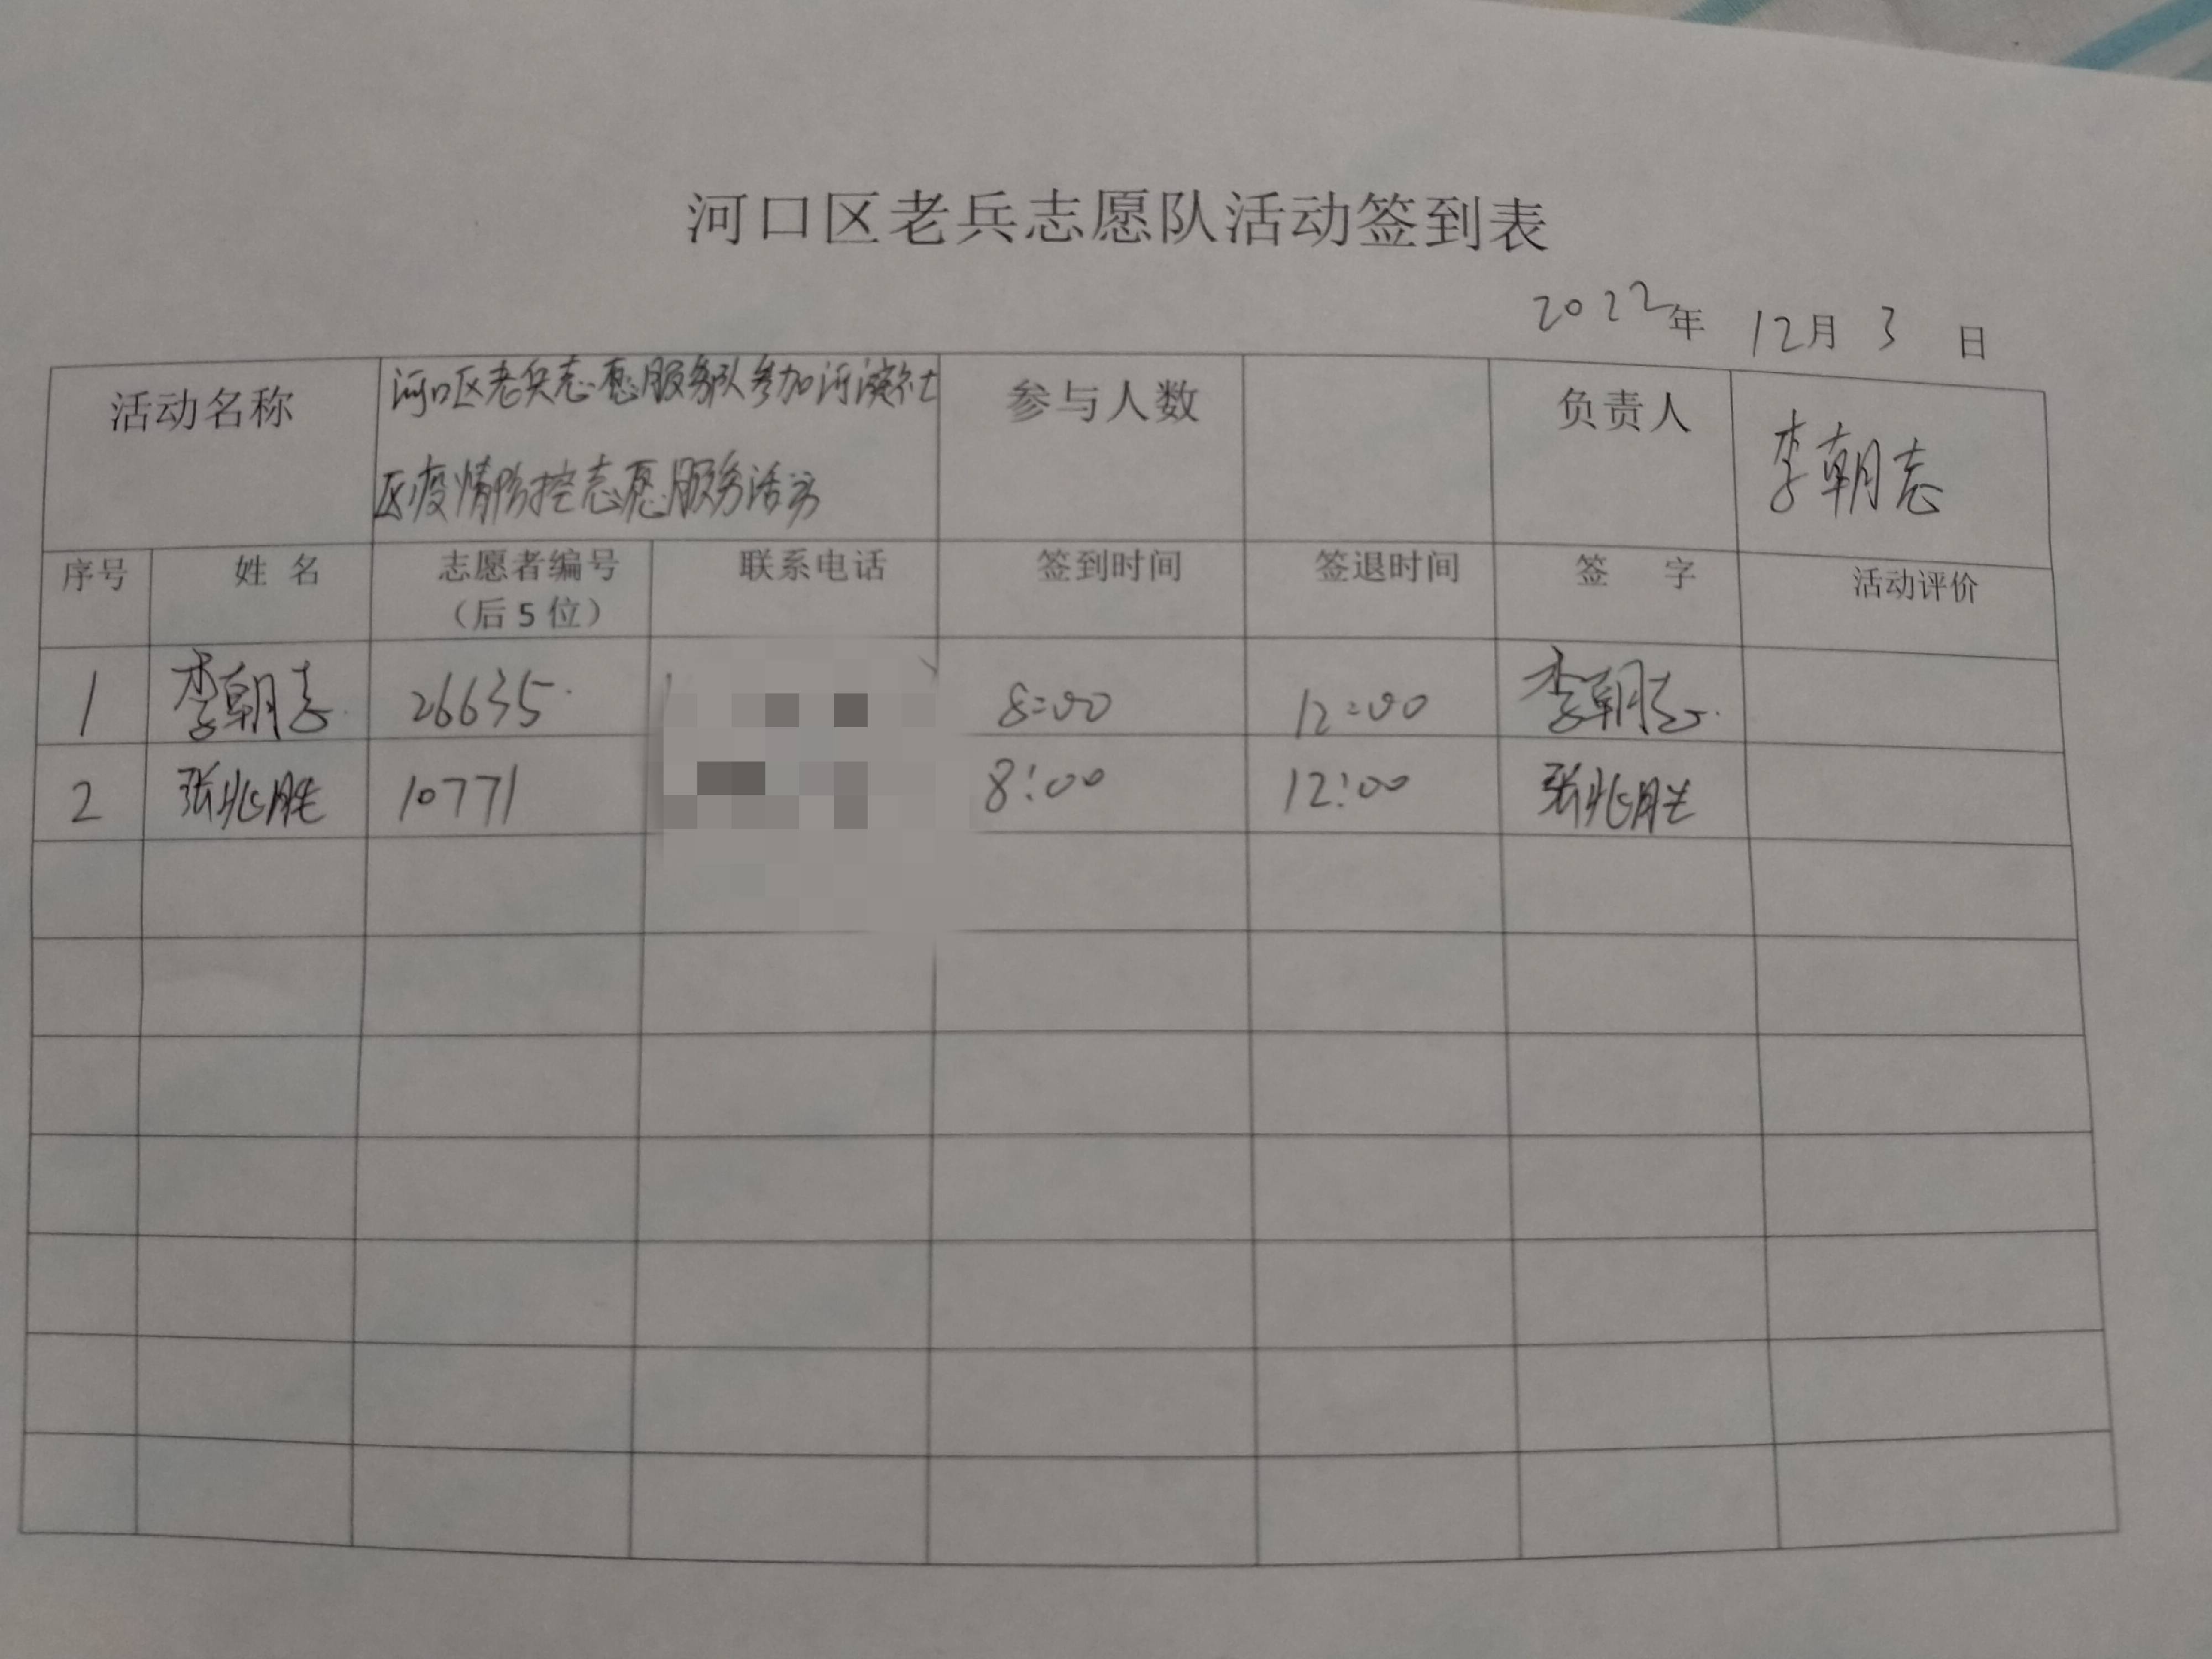 河口区老兵志愿队活动签到表
2022年 12月 3 日
活动名称 河口区老兵志愿服务队参加河滨社 参与人数 负责人 李朝志
区疫情防控志愿服务活动
序号 姓名 志愿者编号 联系电话 签到时间 签退时间 签 字 活动评价
（后5位）
1 李朝志 26635 8:00 12:00 李朝志
2 张兆胜 10771 8:00 12:00 张兆胜